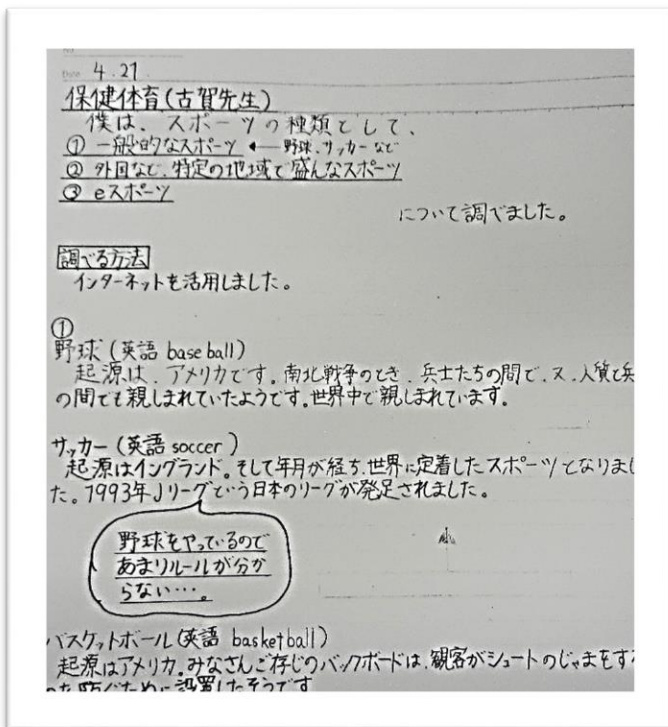 No.
Date 4.21.
保健体育(古賀先生)
僕は、スポーツの種類として、
① 一般的なスポーツ ← 野球、サッカーなど
② 外国など、特定の地域で盛んなスポーツ
③ eスポーツ
について調べました。
調べる方法
インターネットを活用しました。
①
野球(英語 base ball)
起源は、アメリカです。南北戦争のとき、兵士たちの間で、又、人質と兵
の間でも親しまれていたようです。世界中で親しまれています。
サッカー(英語 soccer)
起源はイングランド。そして年月が経ち、世界に定着したスポーツとなりまし
た。1993年Jリーグという日本のリーグが発足されました。
野球をやっているので
あまりルールが分か
らない…。
バスケットボール(英語 basketball)
起源はアメリカ。みなさんご存じのバックボードは、観客がシュートのじゃまをす
防ぐために設置したそうです